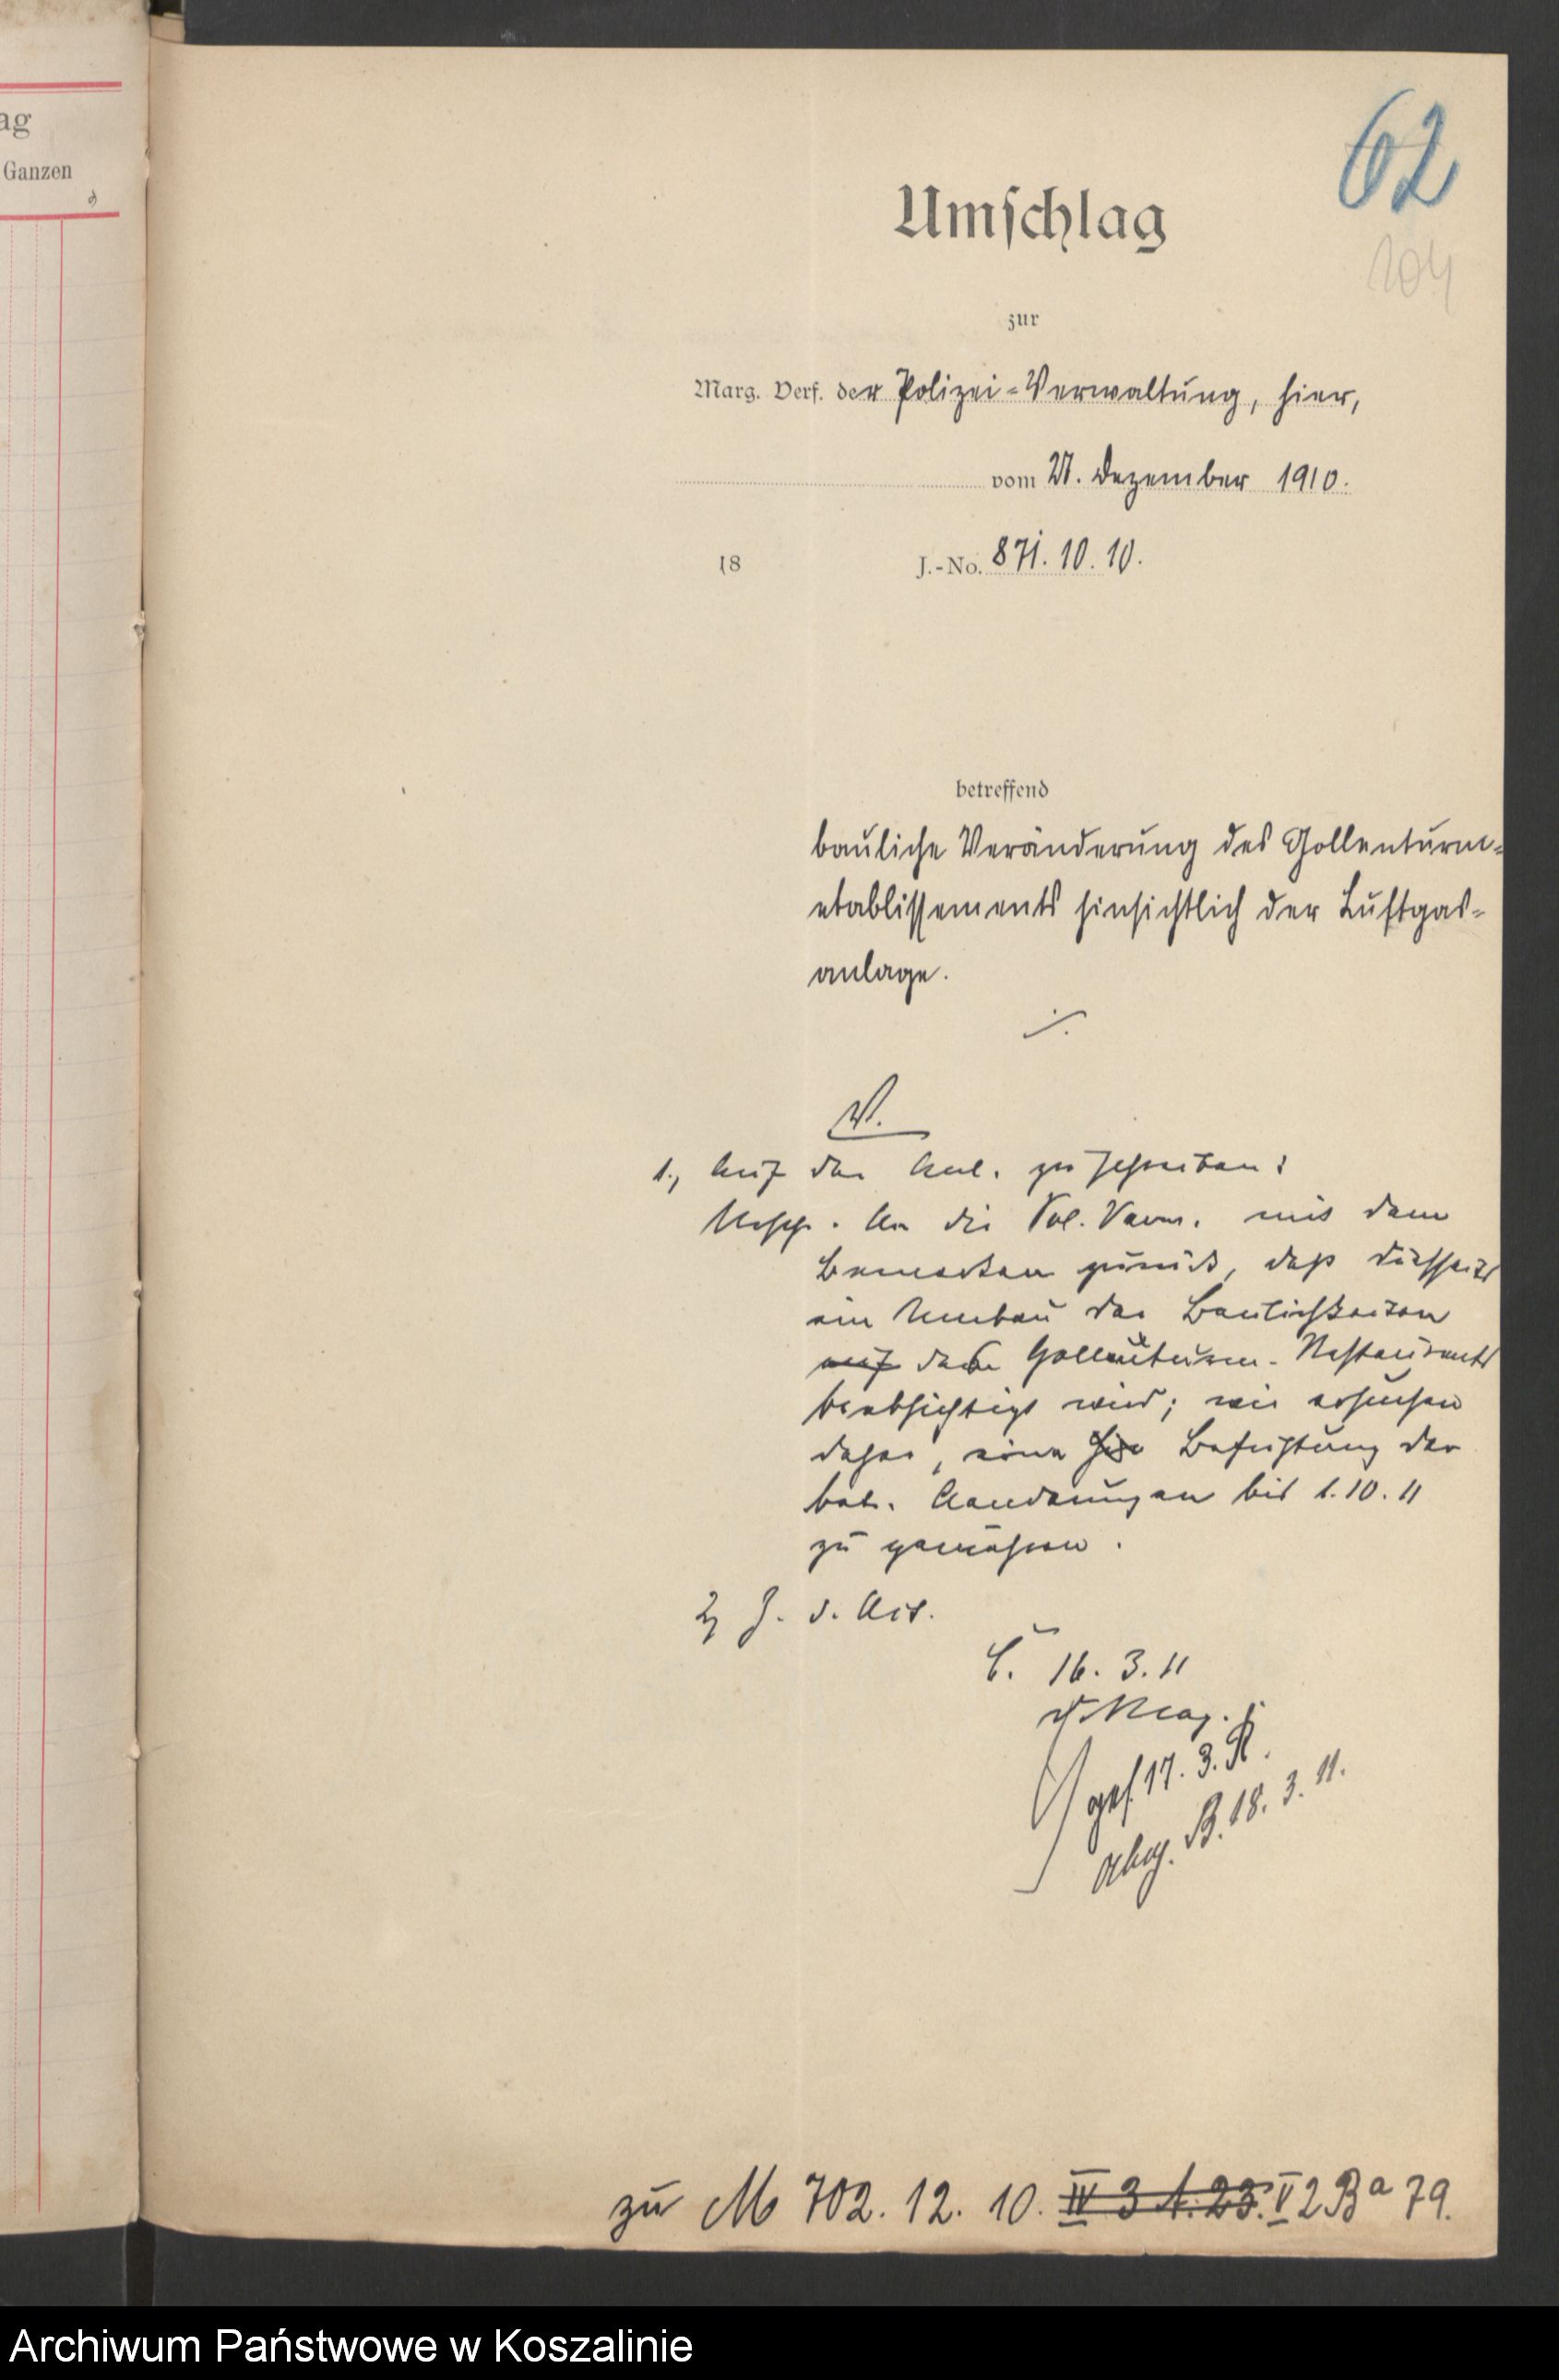 ag
Ganzen
62
104
Umschlag
zur
Marg. Verf. der Polizei-Verwaltung, hier,
vom 21. Dezember 1910.
18 J.-No. 871. 10. 10.
betreffend
bauliche Veränderung des Gollenturm-
etablissements hinsichtlich der Luftgas-
anlage.
V.
1., Auf den Anl. zu schreiben:
Urschr. An die Pol. Verw. mit dem
Bemerken zurück, daß diesseits
ein Umbau der Baulichkeiten
auf des Gollenturm-Restaurants
beabsichtigt wird; wir ersuchen
daher, eine Befristung der
betr. Aenderungen bis 1.10.11
zu gewähren.
2, Z. d. Act.
C. 16. 3. 11
d. Mag.
gef. 17. 3. R.
Abg. B. 18. 3. 11.
zu M 702. 12. 10. IV 3 A. 23. V 2 Ba 79.
Archiwum Państwowe w Koszalinie